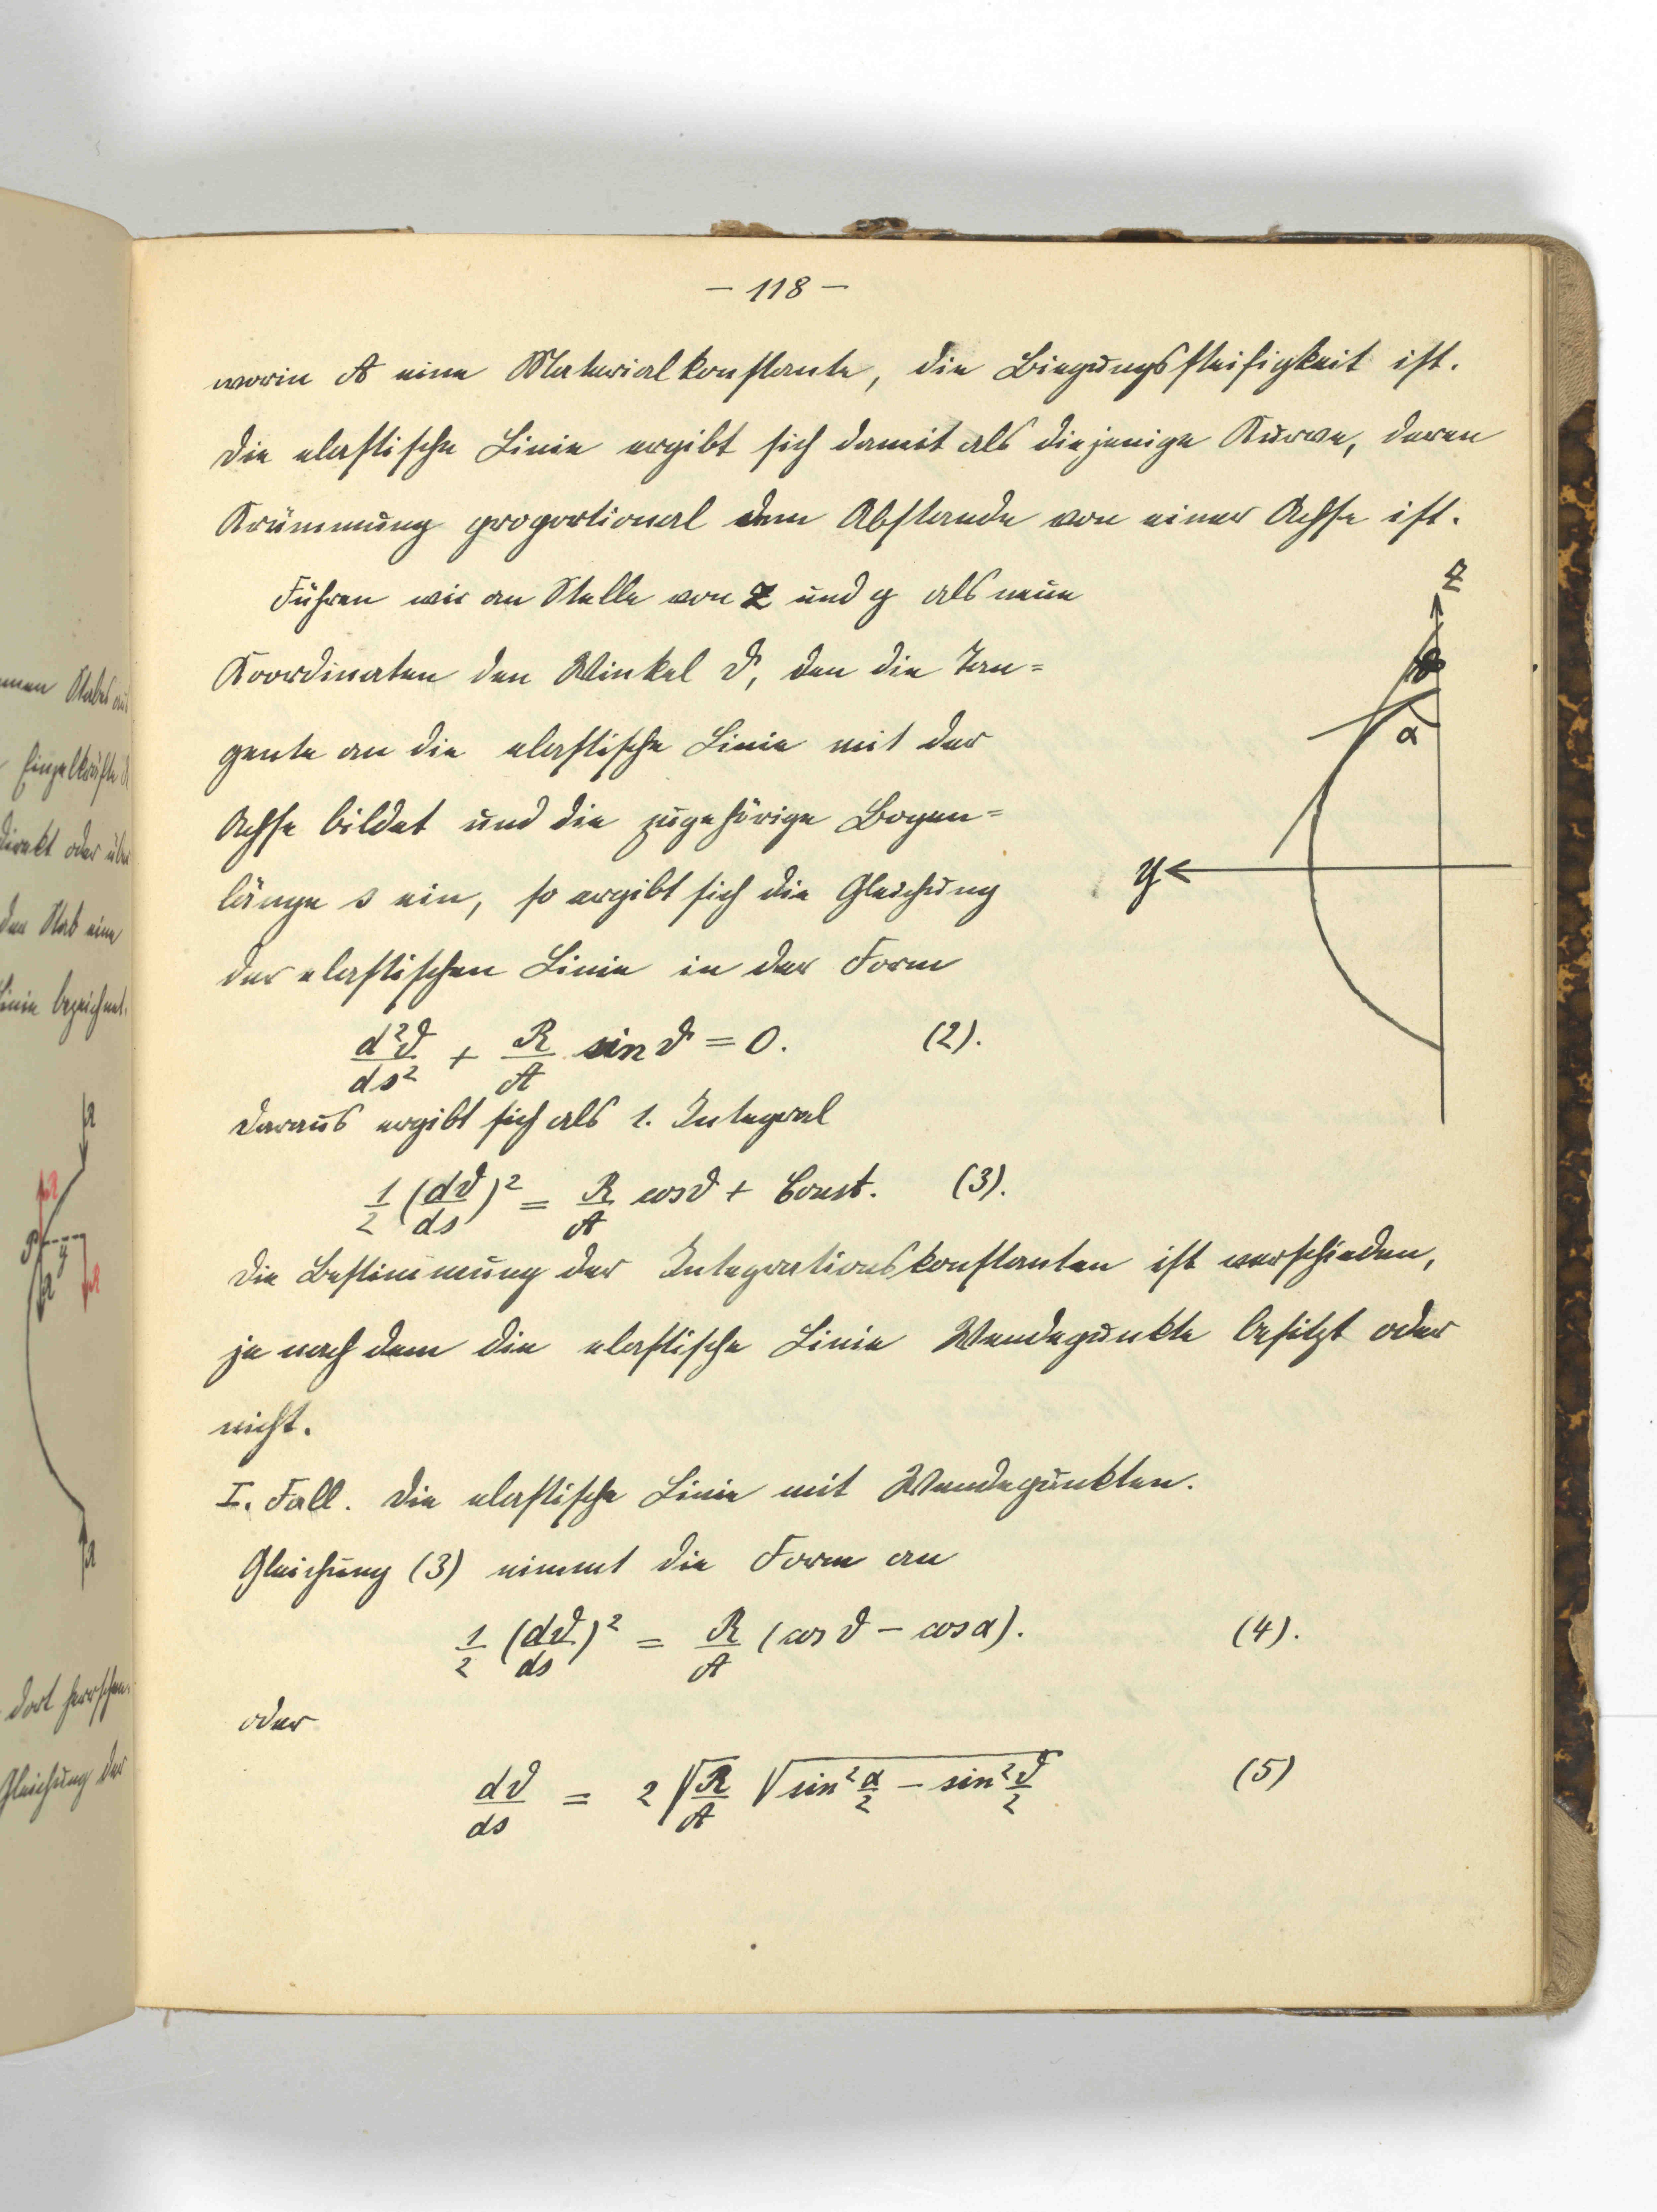 – 118 –
worin A eine Materialkonstante, die Biegungssteifigkeit ist.
Die elastische Linie ergibt sich damit als diejenige Kurve, deren
Krümmung proportional dem Abstande von einer Achse ist.
Führen wir an Stelle von z und y als neue
Koordinaten den Winkel ϑ, den die Tan=
gente an die elastische Linie mit der
Achse bildet und die zugehörige Bogen=
länge s ein, so ergibt sich die Gleichung
der elastischen Linie in der Form
d²ϑ/ds² + R/A sin ϑ = 0. (2).
Daraus ergibt sich als 1. Integral
1/2 (dϑ/ds)² = R/A cos ϑ + Const. (3).
Die Bestimmung der Integrationskonstanten ist verschieden,
je nach dem die elastische Linie Wendepunkte besitzt oder
nicht.
I. Fall. Die elastische Linie mit Wendepunkten.
Gleichung (3) nimmt die Form an
1/2 (dϑ/ds)² = R/A (cos ϑ – cos α). (4).
oder
dϑ/ds = 2 √(R/A) √(sin² α/2 – sin² ϑ/2) (5)
z
ϑ
α
y
Stabes
Einzelkräfte
direkt oder über
den Stab eine
Linie bezeichnet.
R
R
P
y
R
R
R
dort herrschen
Gleichung der